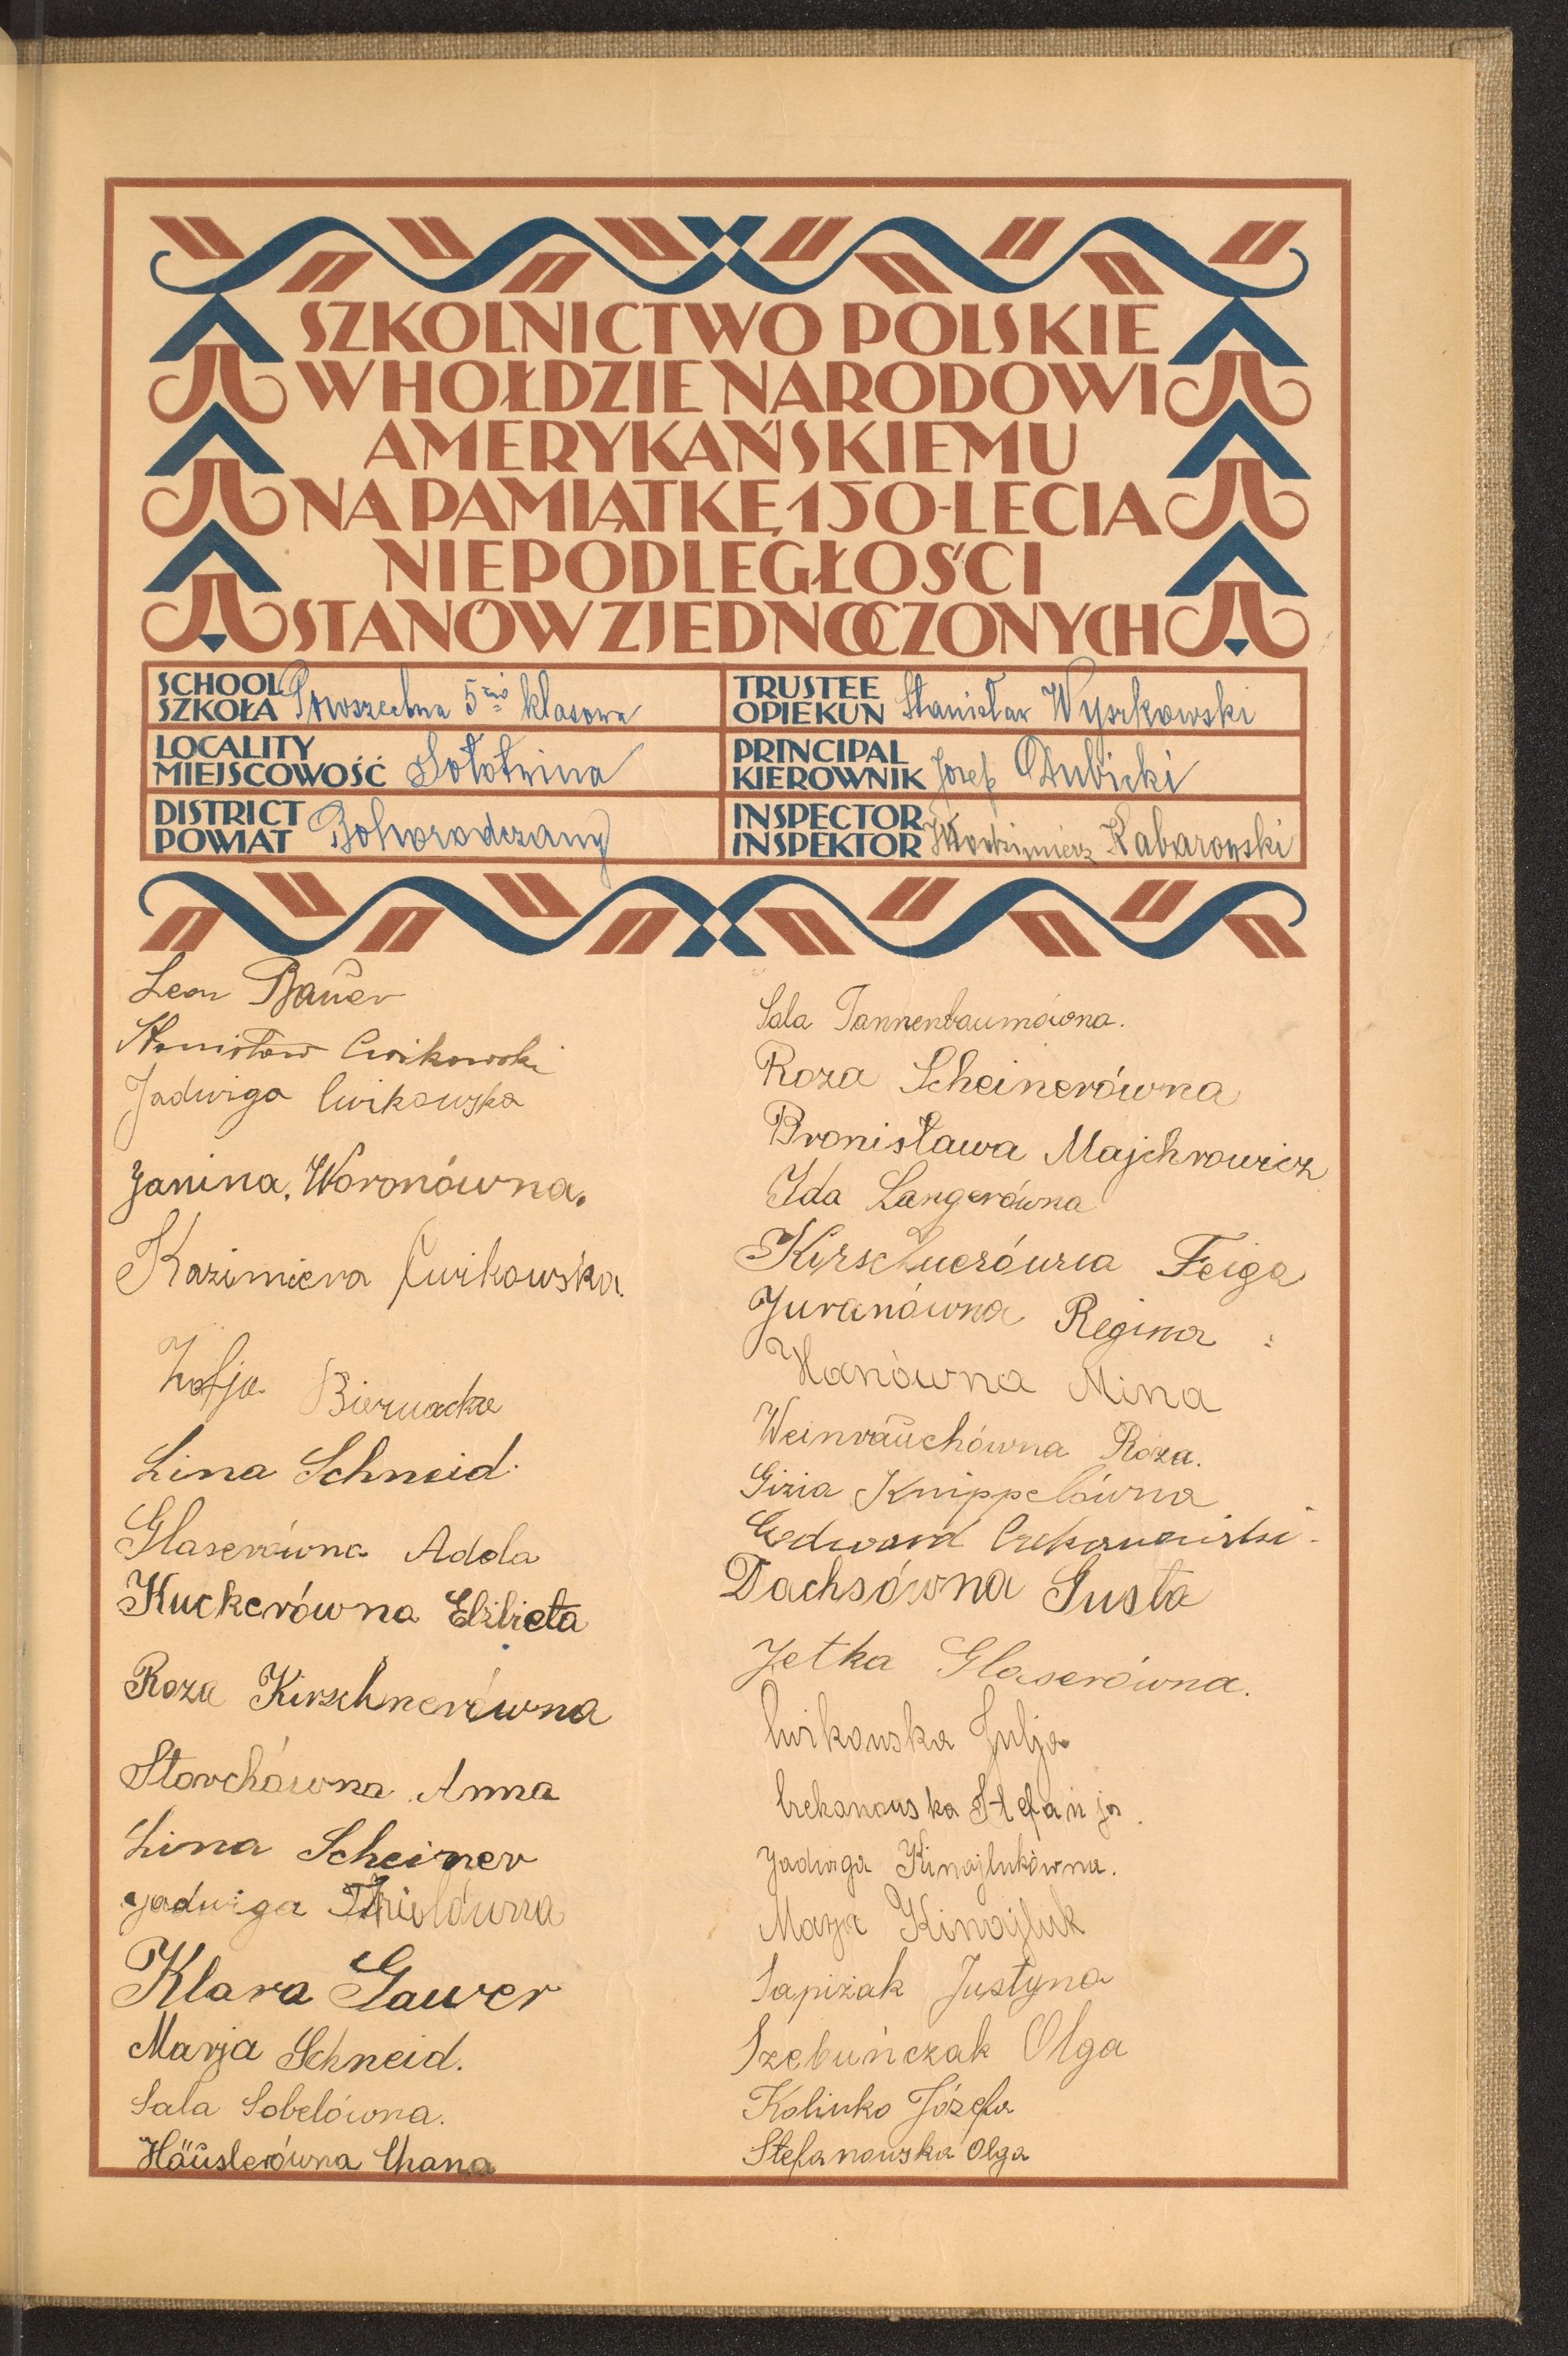 SZKOLNICTWO POLSKIE
W HOŁDZIE NARODOWI
AMERYKAŃSKIEMU
NA PAMIĄTKĘ 150-LECIA
NIEPODLEGŁOŚCI
STANÓW ZJEDNOCZONYCH
SCHOOL
SZKOŁA Powszechna 5cio klasowa
LOCALITY
MIEJSCOWOŚĆ Sołotwina
DISTRICT
POWIAT Bohorodczany
TRUSTEE
OPIEKUN Stanisław Wyszkowski
PRINCIPAL
KIEROWNIK Józef Dubicki
INSPECTOR
INSPEKTOR Włodzimierz Kabarowski
Leon Bauer
Stanisław Cwikowski
Jadwiga Cwikowska
Janina. Woronówna.
Kazimiera Cwikowska.
Zofja Biernacka
Lina Schneid.
Glaserówna Adela
Kuckerówna Elżbieta
Roza Kirschnerówna
Storchówna Anna
Lina Scheiner
Jadwiga
Klara Gawer
Marja Schneid.
Sala Sobelówna.
Häuslerówna Chana
Sala Tannenbaumówna.
Roza Scheinerówna
Bronisława Majchrowicz
Ida Langerówna
Kirschnerówna Feiga
Juranówna Regina
Hanówna Mina
Weinrauchówna Róza.
Gizia Knippelówna
Edward
Dachsówna Gusta
Jetka Glaserówna.
Cwikowska Julja
Czekanowska Stefanja.
Jadwiga Kinajlukówna.
Marja Kinajluk
Sapiżak Justyna
Szebuńczak Olga
Kolinko Józefa
Stefanowska Olga